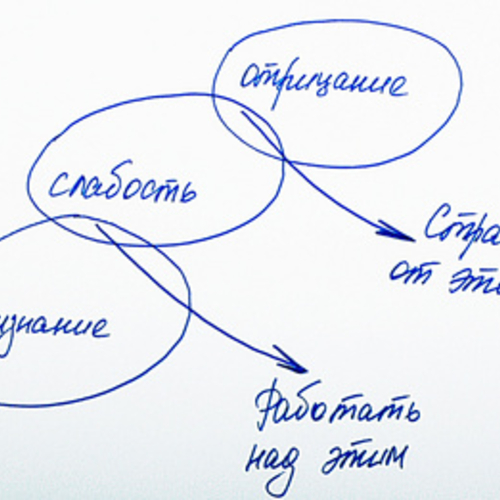 отрицание
слабость
Стра
от эти
знание
Работать
над этим